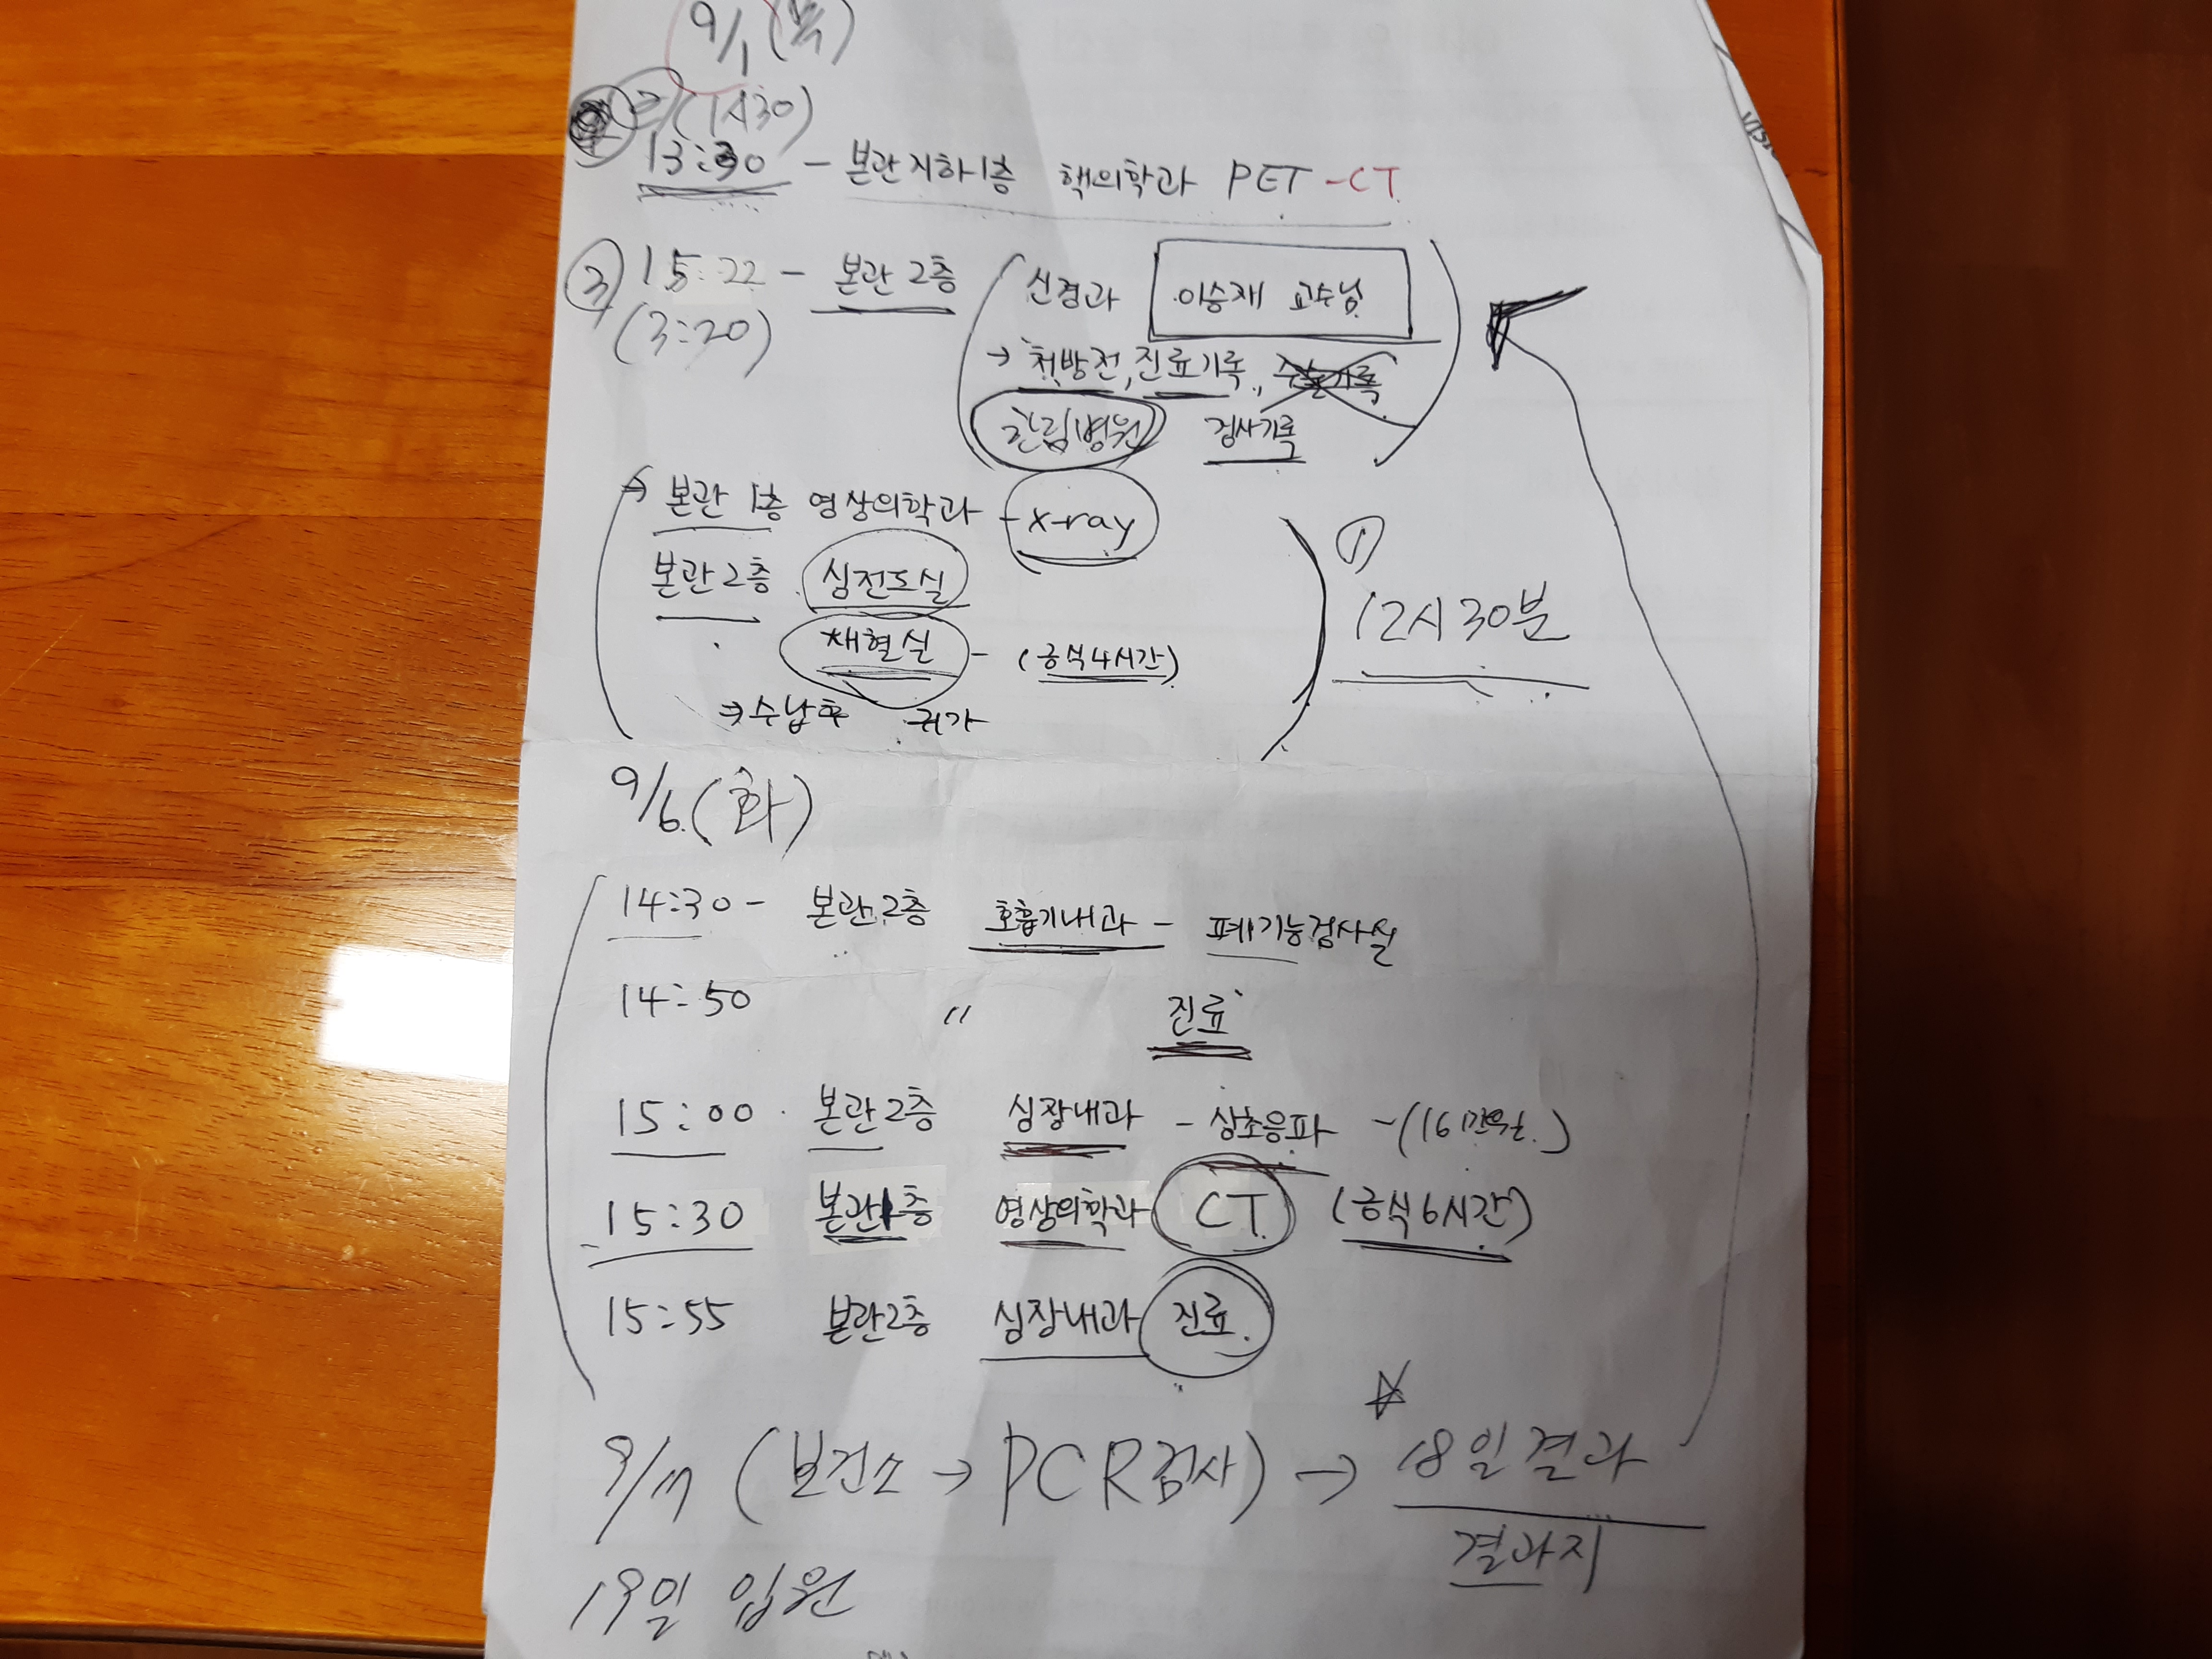 9/1 (목)
② (1시30)
13:30 - 본관 지하1층 핵의학과 PET-CT
③ 15:22 - 본관 2층 신경과 이승재 교수님
(3:20)
→ 처방전, 진료기록, 수술기록
한림병원 검사기록
→ 본관 1층 영상의학과 - x-ray
본관 2층 심전도실
①
12시 30분
채혈실 - (금식 4시간)
→ 수납후 귀가
9/6 (화)
14:30 - 본관 2층 호흡기내과 - 폐기능검사실
14:50 〃 진료
15:00 본관 2층 심장내과 - 상초음파 - (16만원)
15:30 본관 1층 영상의학과 CT (금식 6시간)
15:55 본관 2층 심장내과 진료
9/17 (보건소 → PCR 검사) → 18일 결과
결과지
19일 입원